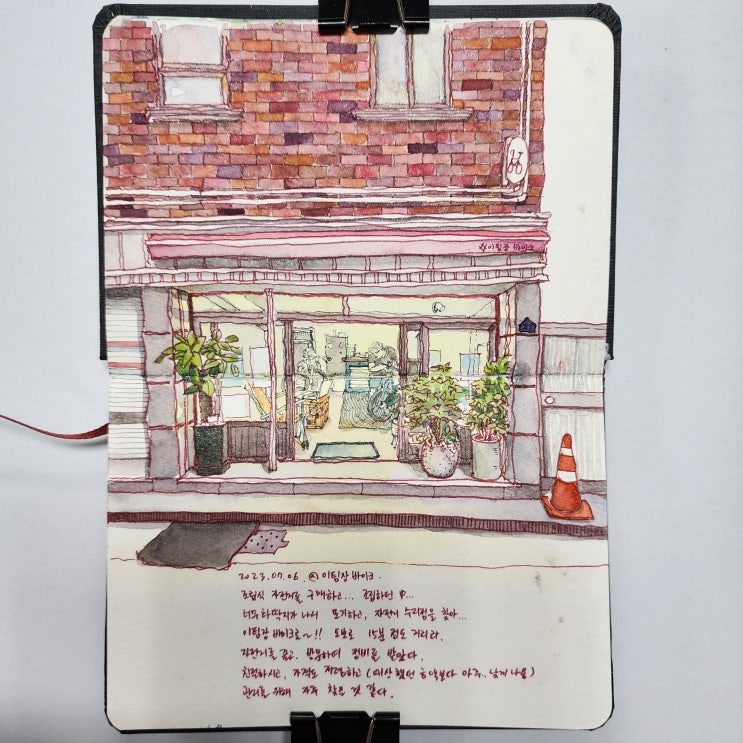 이팀장 바이크
2023.07.06. @이팀장 바이크.
조립식 자전거를 구매하고... 조립하던 中...
너무 하딱지가 나서 포기하고, 자전거 수리점을 찾아...
이팀장 바이크로~!! 도보로 15분 정도 거리라.
자전거를 끌고, 방문하여 정비를 받았다.
친절하시고, 가격도 저렴하고 (예상했던 금액보다 아주.. 낮게 나옴)
관리를 위해 자주 찾을 것 같다.